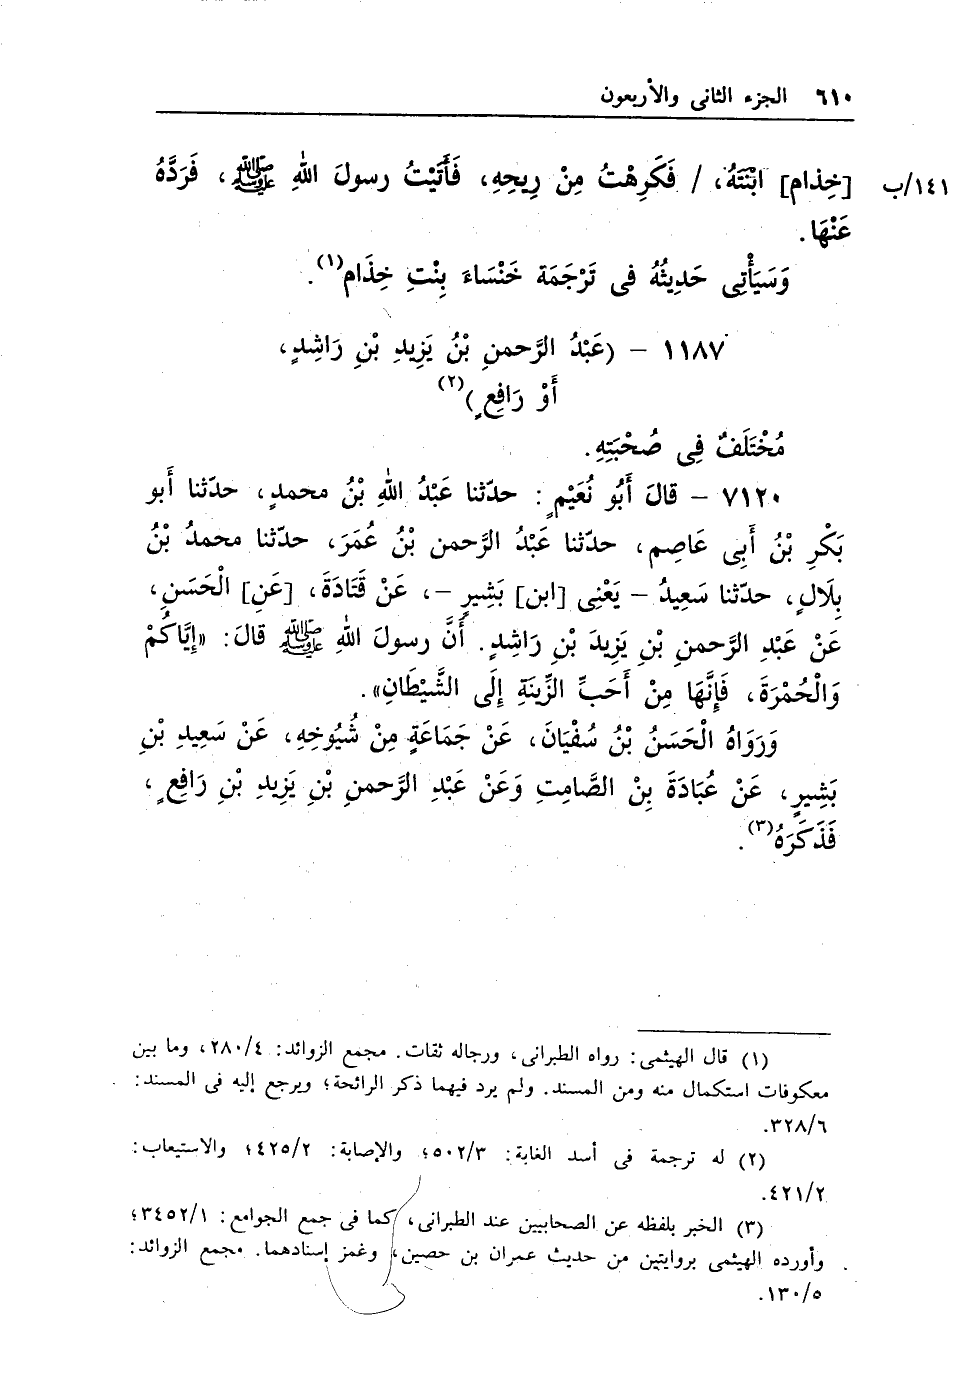 ٦١٠ الجزء الثانى والأربعون
١٤١/ب [خِذام] ابْنَتَهُ، / فَكَرِهْتُ مِنْ رِيحِهِ، فَأَتَيْتُ رسولَ اللهِ ﷺ، فَرَدَّهُ
عَنْهَا.
وَسَيَأْتِى حَدِيثُهُ فى تَرْجَمَة خَنْسَاءَ بِنْتِ خِذَام(١).
١١٨٧ - (عَبْدُ الرَّحمنِ بْنُ يَزِيدِ بْنِ رَاشِدٍ،
أَوْ رَافِعٍ)(٢)
مُخْتَلَفٌ فِى صُحْبَتِهِ.
٧١٢٠ - قالَ أَبُو نُعَيْمٍ: حدّثنا عَبْدُ اللهِ بْنُ محمدٍ، حدّثنا أَبو
بَكْرِ بْنُ أَبِى عَاصِم، حدّثنا عَبْدُ الرَّحمن بْنُ عُمَرَ، حدّثنا محمدُ بْنُ
بِلَالٍ، حدّثنا سَعِيدُ - يَعْنِى [ابن] بَشِيرٍ -، عَنْ قَتَادَةَ، [عَنِ] الْحَسَنِ،
عَنْ عَبْدِ الرَّحمنِ بْنِ يَزِيدَ بْنِ رَاشِدٍ. أَنَّ رسولَ اللهِ ﷺ قالَ: «إِيَّاكُمْ
وَالْحُمْرَةَ، فَإِنَّهَا مِنْ أَحَبِّ الزِّينَةِ إِلَى الشَّيْطَانِ».
وَرَوَاهُ الْحَسَنُ بْنُ سُفْيَانَ، عَنْ جَمَاعَةٍ مِنْ شُيُوخِهِ، عَنْ سَعِيدِ بْنِ
بَشِيرٍ، عَنْ عُبَادَةَ بِنْ الصَّامِتِ وَعَنْ عَبْدِ الرَّحمنِ بْنِ يَزِيدِ بْنِ رَافِعٍ،
فَذَكَرَهُ(٣).
(١) قال الهيثمى: رواه الطبرانى، ورجاله ثقات. مجمع الزوائد: ٢٨٠/٤، وما بين
معكوفات استكمال منه ومن المسند. ولم يرد فيهما ذكر الرائحة؛ ويرجع إليه فى المسند:
٣٢٨/٦.
(٢) له ترجمة فى أسد الغابة: ٥٠٢/٣؛ والإصابة: ٤٢٥/٢؛ والاستيعاب:
٤٢١/٢.
(٣) الخبر بلفظه عن الصحابيين عند الطبرانى، كما فى جمع الجوامع: ٣٤٥٢/١؛
وأورده الهيثمى بروايتين من حديث عمران بن حصين، وغمز إسنادهما. مجمع الزوائد:
١٣٠/٥.